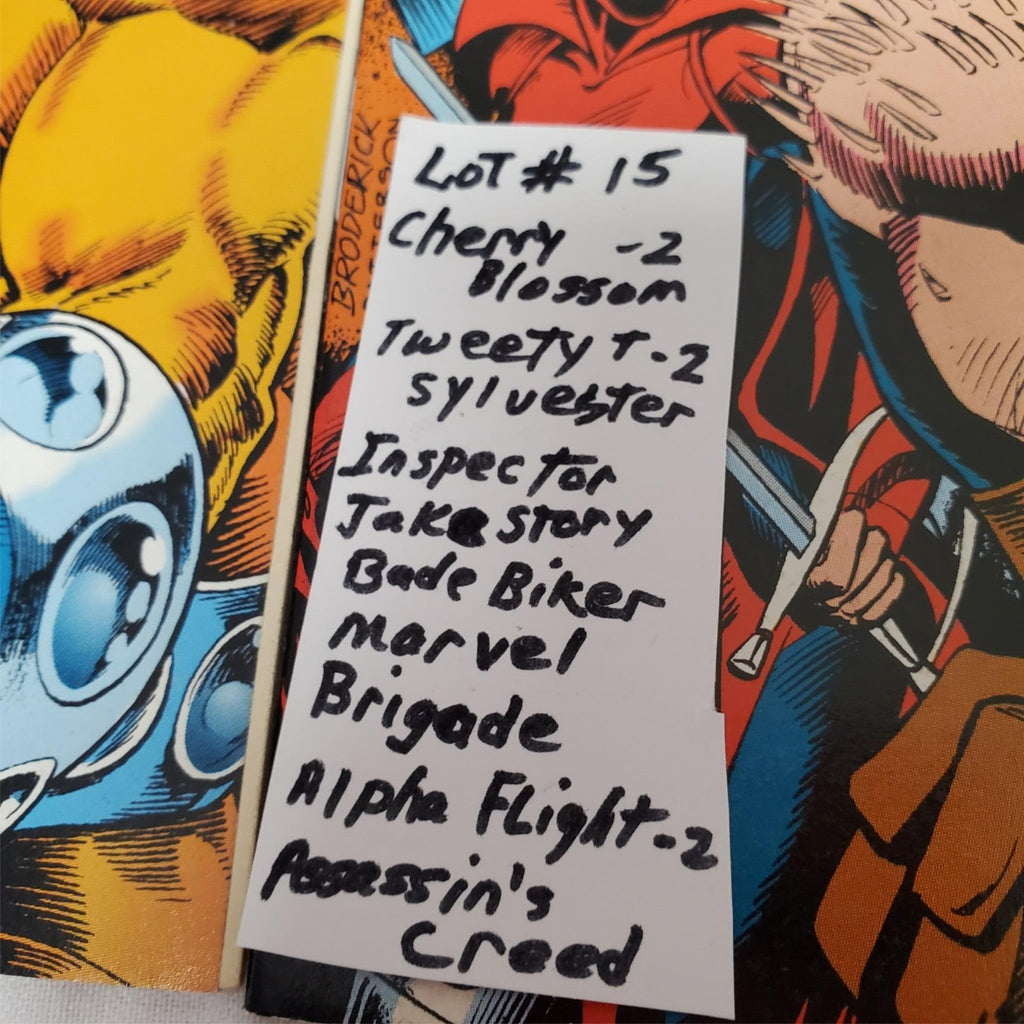 LOT # 15
Cherry -2
Blossom
Tweety + -2
Sylvester
Inspector
Jake story
Bade Biker
Marvel
Brigade
Alpha Flight -2
Assassin's
Creed
BRODERICK